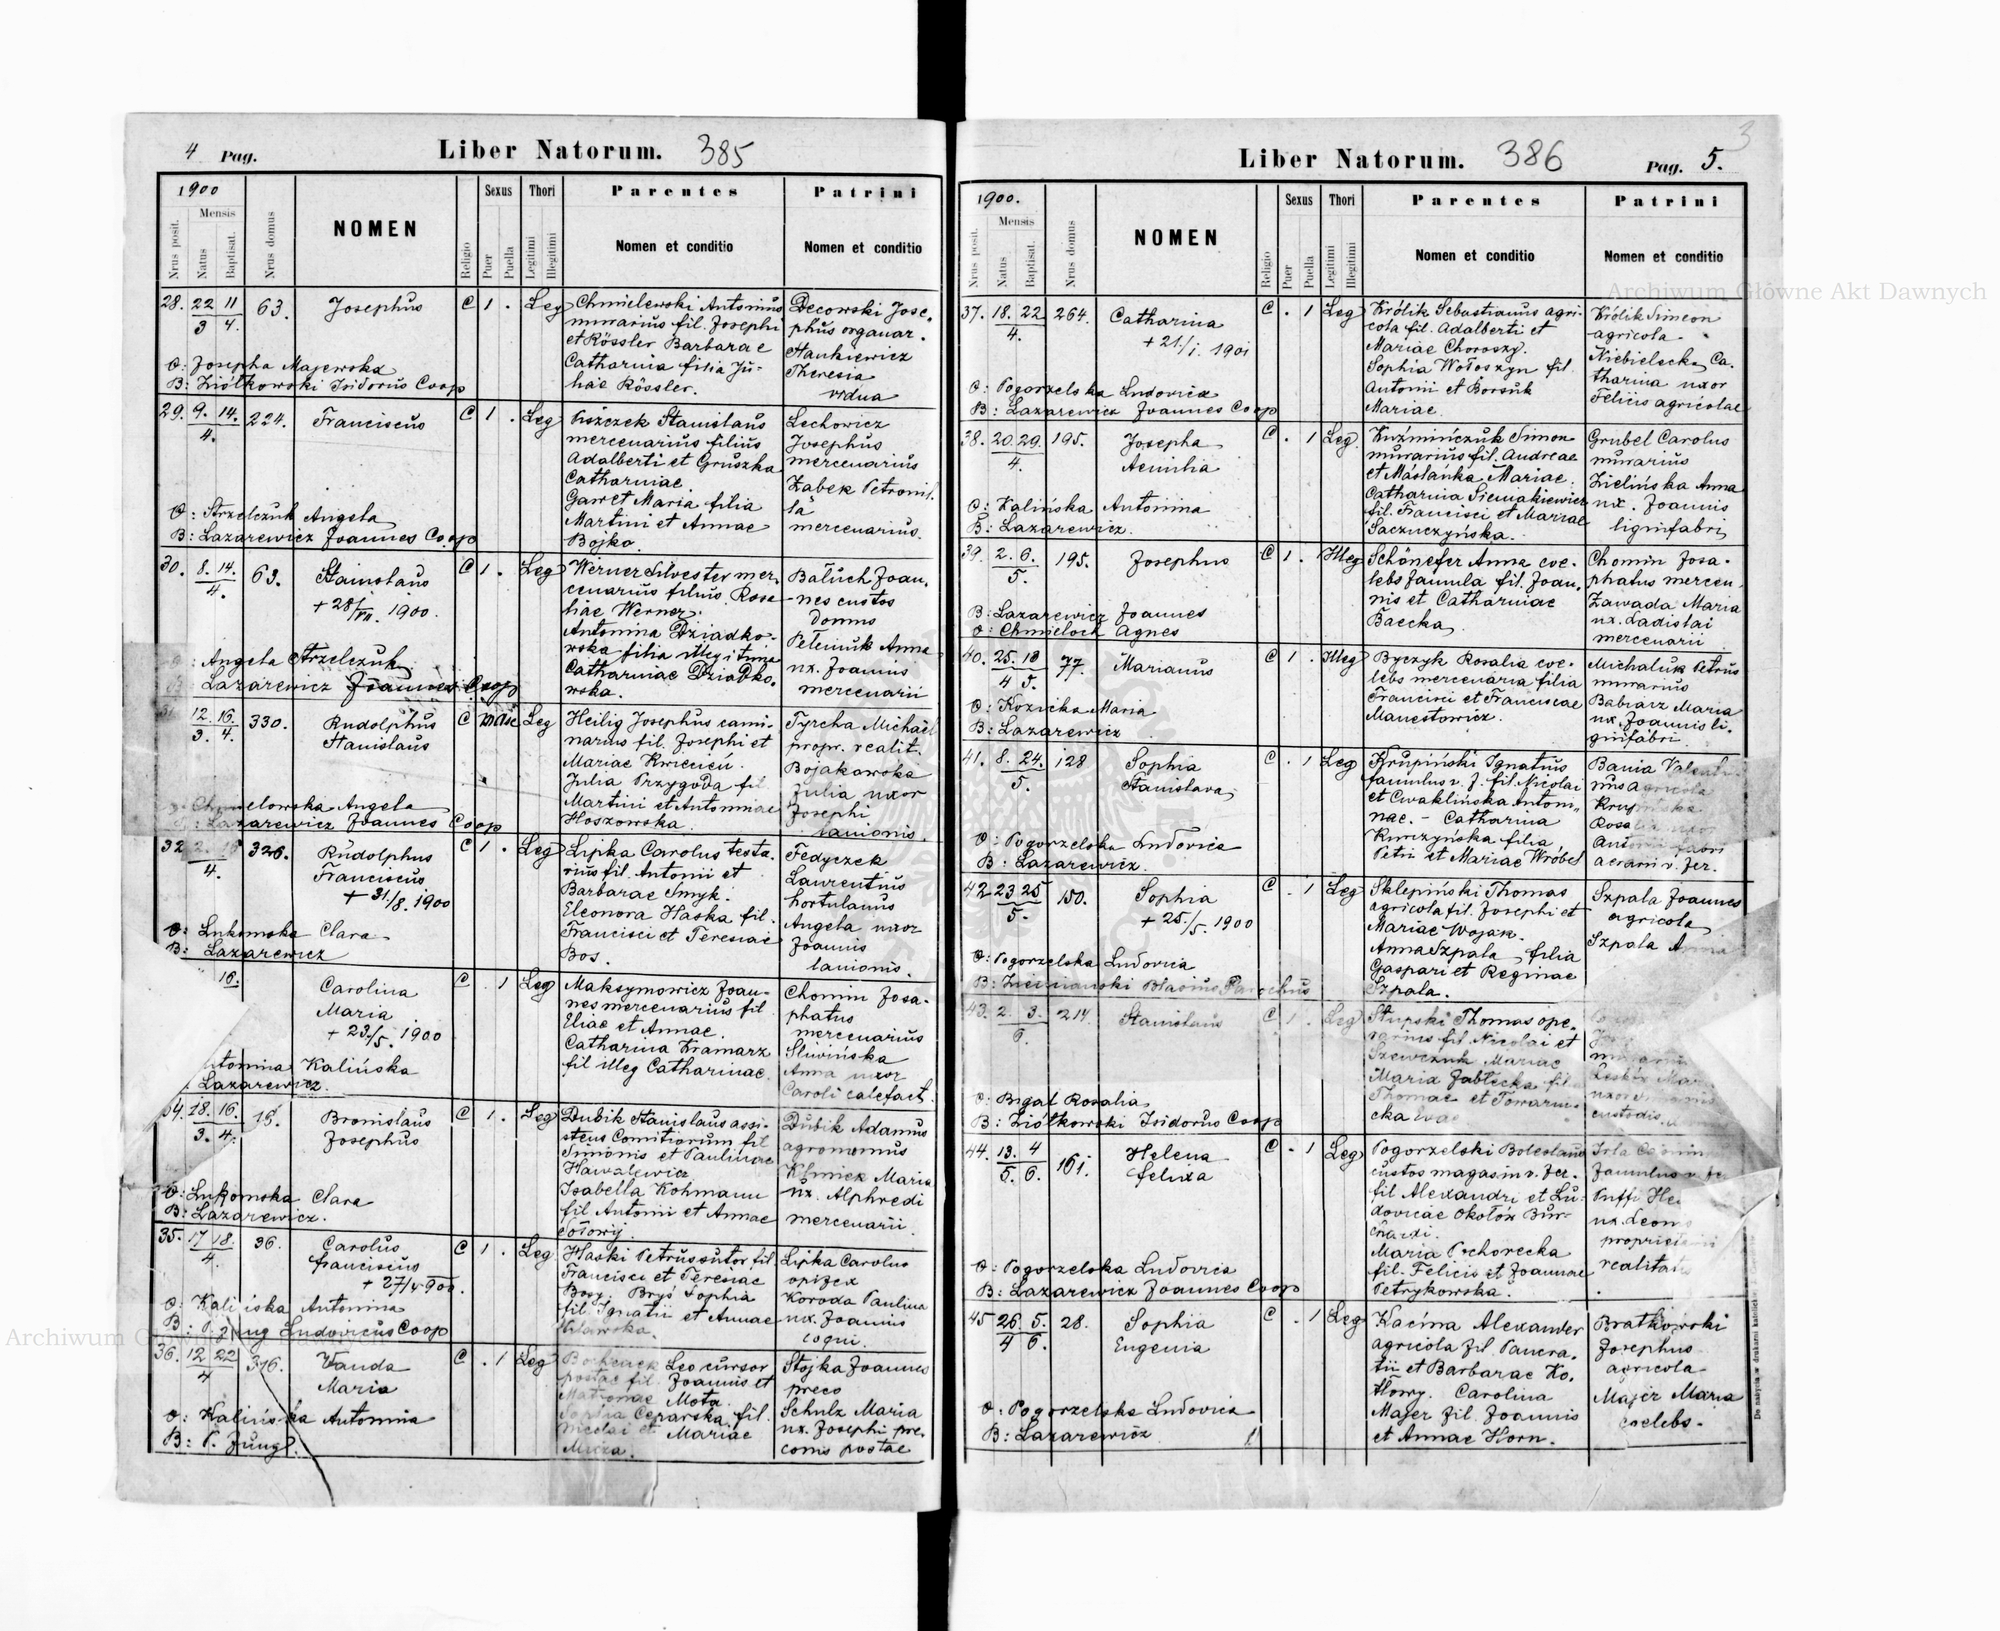 4 Pag. Liber Natorum. 385
1900
Nrus posit.
Mensis
Natus
Baptisat.
Nrus domus
NOMEN
Religio
Sexus
Puer
Puella
Thori
Legitimi
Illegitimi
Parentes
Nomen et conditio
Patrini
Nomen et conditio
28. 22 11 63. Josephus C 1 . Leg
3 4.
Chmielewski Antonius
murarius fil. Josephi
et Rössler Barbarae
Catharina filia Ju-
liae Rössler.
Decowski Jose-
phus organar.
Stankiewicz
Theresia
vidua
O: Josepha Majewska
B: Ziółkowski Isidorus Coop
29. 9. 14. 224. Franciscus C 1 . Leg
4.
Stanislaus
mercenarius filius
Adalberti et Gruszka
Catharinae.
Gawet Maria filia
Martini et Annae
Bojko.
Lechowicz
Josephus
mercenarius
Żabek Petronil.
la
mercenarius.
O: Strzelczuk Angela
B: Lazarewicz Joannes Coop
30. 8. 14. 63. Stanislaus C 1 . Leg
4.
+ 28/VII. 1900.
Werner Silvester mer-
cenarius filius Rosa
liae Werner.
Antonina Dziadko-
wska filia illegitima
Catharinae Dziadko-
wska.
Baluch Joan-
nes custos
domus
Anna
ux. Joannis
mercenarii
: Angela Strzelczuk
Lazarewicz Joannes Coop
12. 16. 330. Rudolphus C Leg
3. 4. Stanislaus
Heilig Josephus cami-
narius fil. Josephi et
Mariae Kwiecień.
Julia Przygoda fil
Martini et Antoninae
Hoszowska.
Tyrcha Michael
propr. realit.
Bojakowska
Julia uxor
Josephi
lanionis.
Angela
Lazarewicz Joannes Coop
32 326. Rudolphus C 1 . Leg
4. Franciscus
+ 31/8. 1900
Lipka Carolus testa-
rius fil. Antonii et
Barbarae Smyk.
Eleonora Haska fil.
Francisci et Teresiae
Bos.
Fedyczek
Laurentius
hortulanus
Angela uxor
Joannis
lanionis.
O: Lukomska Clara
B: Lazarewicz
16. Carolina C . 1 Leg
Maria
+ 23/5. 1900
Maksymowicz Joan-
nes mercenarius fil
Eliae et Annae.
Catharina Kramarz
fil illeg Catharinae.
Chomin Josa-
phatus
mercenarius
Sliwińska
Anna uxor
Caroli calefact.
Kalińska
Lazarewicz.
34. 18. 16. 15. Bronislaus C 1 . Leg
3. 4. Josephus
Dubik Stanislaus assi-
stens Comitiorum fil
Simonis et Paulinae
Isabella Kohmann
fil Antonii et Annae
Sołowij.
Dubik Adamus
agronomus
Klimek Maria
ux. Alphredi
mercenarii.
O: Lukomska Clara
B: Lazarewicz.
35. 17 18. 36. Carolus C 1 . Leg
4. Franciscus
+ 27/4 900.
Haski Petrus sutor fil.
Francisci et Teresiae
Bosy. Bryś Sophia
fil. Ignatii et Annae
Lipka Carolus
opifex
Koroda Paulina
ux. Joannis
coqui.
O: Antonina
B: Jung Ludovicus Coop
36. 12 22 376. Wanda C . 1 Leg
4 Maria
Leo cursor
postae fil. Joannis et
Mota.
Sophia fil.
Nicolai et Mariae
Stojka Joannes
preco
Schulz Maria
ux. Josephi pre-
conis postae
O: Kalińska Antonina
B: P. Jung.
Liber Natorum. 386 Pag. 5.
3
1900.
Nrus posit.
Mensis
Natus
Baptisat.
Nrus domus
NOMEN
Religio
Sexus
Puer
Puella
Thori
Legitimi
Illegitimi
Parentes
Nomen et conditio
Patrini
Nomen et conditio
37. 18. 22 264. Catharina C . 1 Leg
4.
+ 21/1. 1901
Królik Sebastianus agri-
cola fil. Adalberti et
Mariae Choroszy.
Sophia Wołoszyn fil.
Antonii et Borsuk
Mariae.
Królik Simeon
agricola.
Ca-
tharina uxor
Felicis agricolae
O: Pogorzelska Ludovica
B: Lazarewicz Joannes Coop
38. 20. 29. 195. Josepha C . 1 Leg
4. Aemilia
Kuźmińczuk Simon
murarius fil. Andreae
et Maślanka Mariae.
Catharina Sieniakiewicz
fil. Francisci et Mariae
Saczuczyńska.
Grubel Carolus
murarius
Zielińska Anna
ux. Joannis
lignifabri
O: Kalińska Antonina
B: Lazarewicz.
39. 2. 6. 195. Josephus C 1 . Illeg
5.
Schönefer Anna coe-
lebs famula fil. Joan-
nis et Catharinae
Baecka.
Chomin Josa-
phatus mercen.
Zawada Maria
ux. Ladislai
mercenarii
B: Lazarewicz Joannes
O: Chmieloch Agnes
40. 25. 13 77. Marianus C 1 . Illeg
4 5.
Byczyk Rosalia coe-
lebs mercenaria filia
Francisci et Franciscae
Manestowicz.
Michaluk Petrus
murarius
Babiarz Maria
ux. Joannis li-
gnifabri
O: Kozicka Maria
B: Lazarewicz
41. 8. 24. 128 Sophia C . 1 Leg
5. Stanislava
Krupiński Ignatius
famulus v. f. fil. Nicolai
et Cwaklińska Anton-
nae. - Catharina
Kurczyńska filia
Petri et Mariae Wróbel
Bania
agricola
aerarii v. fer.
O: Pogorzelska Ludovica
B: Lazarewicz.
42 23 25 150. Sophia C . 1 Leg
5.
+ 25/5. 1900
Sklepiński Thomas
agricola fil. Josephi et
Mariae Wojak.
Anna Szpala filia
Gaspari et Reginae
Szpala.
Szpala Joannes
agricola
Szpala
O: Pogorzelska Ludovica
B: Blasius Parochus
43. 2. 3. 214 Stanislaus C 1 . Leg
6.
Thomas ope-
rarius fil Nicolai et
Szewczuk Mariae
Maria Jabłecka fil.
Thomae et
custodis
O: Bigal Rosalia
B: Ziółkowski Isidorus Coop
44. 13. 4 161. Helena C . 1 Leg
5. 6. Felixa
Pogorzelski Boleslaus
custos magasin v. fer.
fil Alexandri et Lu-
dovicae Okołów Bur-
chardi.
Maria Pchorecka
fil. Felicis et Joannae
Petrykowska.
famulus v. fer
Puffi
ux. Leonis
realitatis
O: Pogorzelska Ludovica
B: Lazarewicz Joannes Coop
45 26. 5. 28. Sophia C . 1 Leg
4 6. Eugenia
Kaćma Alexander
agricola fil Pancra-
tii et Barbarae Ko-
tłowy. Carolina
Majer fil. Joannis
et Annae Horn.
Bratkowski
Josephus
agricola
Majer Maria
coelebs.
O: Pogorzelska Ludovica
B: Lazarewicz
Archiwum Główne Akt Dawnych
Archiwum Główne Akt Dawnych